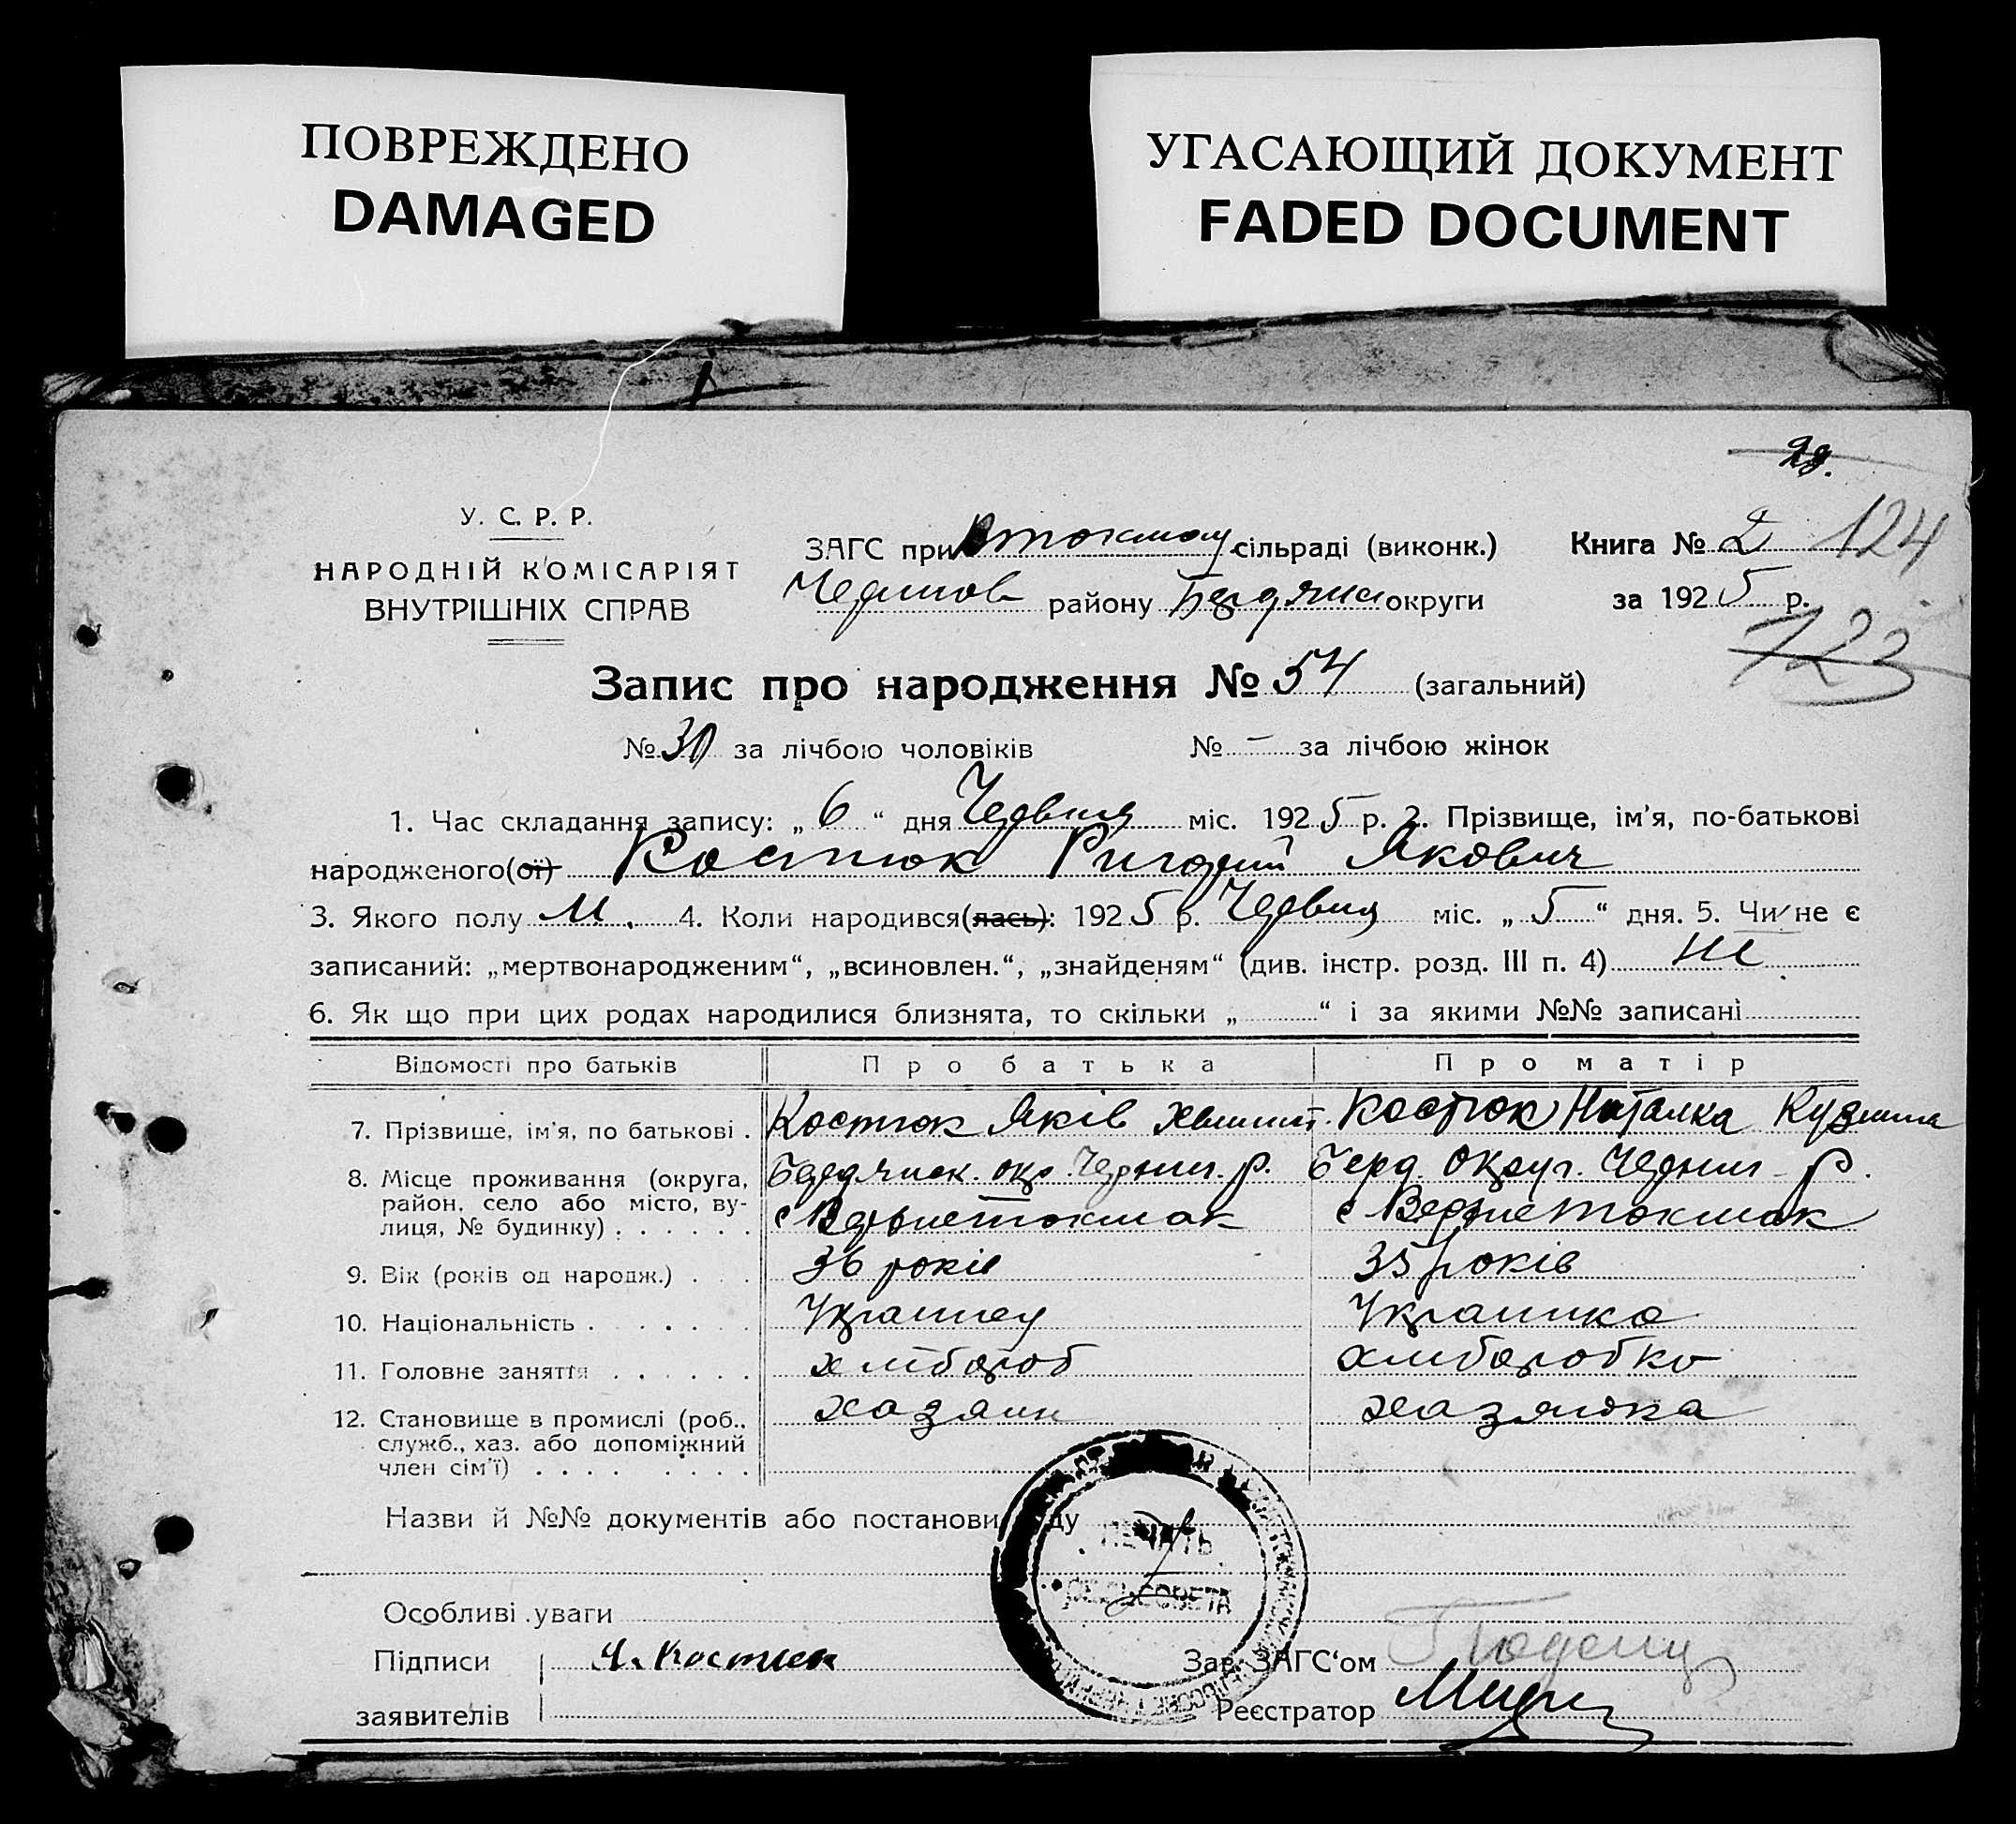 ПОВРЕЖДЕНО
DAMAGED
УГАСАЮЩИЙ ДОКУМЕНТ
FADED DOCUMENT
У. С. Р. Р.
НАРОДНІЙ КОМІСАРІЯТ
ВНУТРІШНІХ СПРАВ
ЗАГС при Втокмац. сільраді (виконк.)
Черниов району Бердянск округи
Книга № 2 124
за 1925 р.
123
Запис про народження № 54 (загальний)
№ 30 за лічбою чоловіків № – за лічбою жінок
1. Час складання запису: „ 6 “ дня Червня міс. 1925 р. 2. Прізвище, ім'я, по-батькові
народженого(ої) Костюк Якович
3. Якого полу М. 4. Коли народився(лась): 1925 р. Червня міс. „ 5 “ дня. 5. Чи не є
записаний: „мертвонародженим“, „всиновлен.“, „знайденям“ (див. інстр. розд. III п. 4) Ні
6. Як що при цих родах народилися близнята, то скільки „ “ і за якими №№ записані
Відомості про батьків Про батька Про матір
7. Прізвище, ім'я, по батькові . Костюк Яків Костюк Наталка Кузмина
8. Місце проживання (округа, район, село або місто, вулиця, № будинку) Бердянск. окр. Черниг. р. Берд. Округ. Черниг. р.
с Верхнетокмак с Верхнетокмак
9. Вік (років од народж.) 36 років 35 років
10. Національність Українец Українка
11. Головне заняття хлібороб хліборобка
12. Становище в промислі (роб., хазяин хазяйка
служб., хаз. або допоміжний
член сім'ї)
Назви й №№ документів або постанови
ПЕЧАТЬ
СЕЛЬСОВЕТА
Особливі уваги
Підписи Я. Костюк Зав. ЗАГС‘ом
заявителів Реєстратор